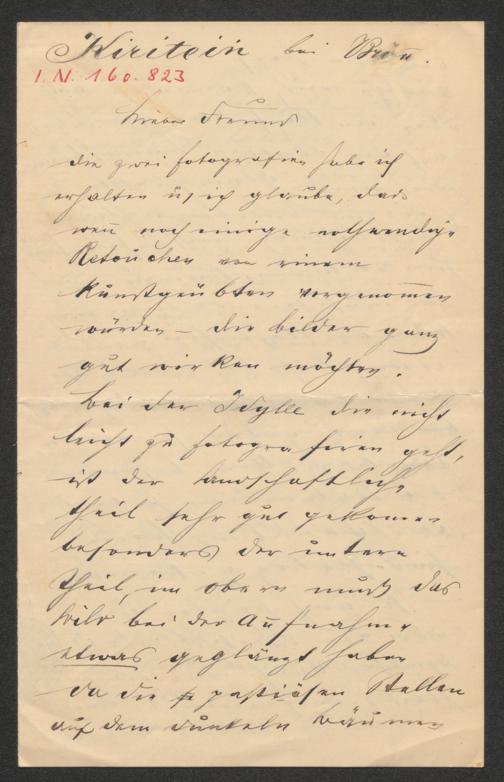 Kiritein bei Brünn.
I.N. 160.823
Lieber Freund
die zwei Fotografien habe ich
erhalten u, ich glaube, das
wen̄ noch einige nothwendige
Retouchen von einem
kunstgeübten vorgenom̄en
würden – die bilder ganz
gut wirken möchten.
Bei der Idylle die nicht
leicht zu fotografieren geht,
ist der landschaftliche
theil sehr gut gekomen
besonders der untere
Theil, im obern muß das
bild bei der Aufnahme
etwas geglänzt haben
da die pastiösen Stellen
auf dem dunkeln Bäumen